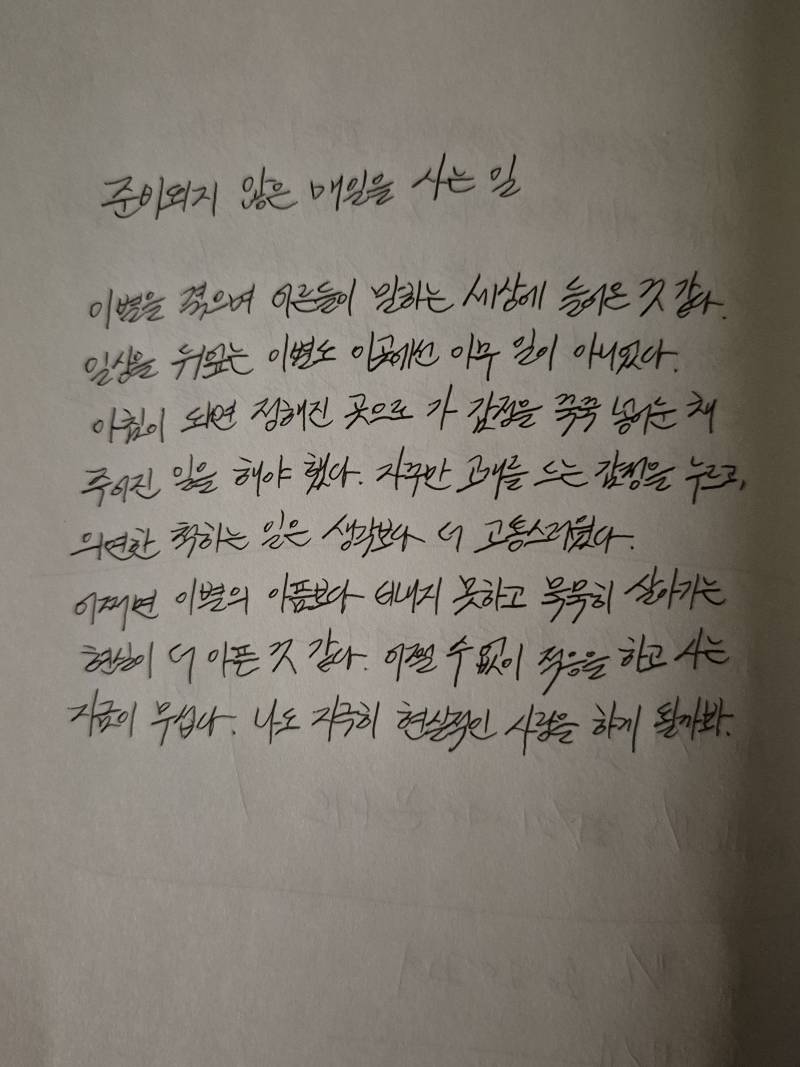 준비되지 않은 매일을 사는 일
이별을 겪으며 어른들이 말하는 세상에 들어온 것 같다.
일상을 뒤엎는 이별도 이곳에선 아무 일이 아니었다.
아침이 되면 정해진 곳으로 가 감정을 꾹꾹 넣어둔 채
주어진 일을 해야 했다. 자꾸만 고개를 드는 감정을 누르고,
의연한 척하는 일은 생각보다 더 고통스러웠다.
어쩌면 이별의 아픔보다 티내지 못하고 묵묵히 살아가는
현실이 더 아픈 것 같다. 어쩔 수 없이 적응을 하고 사는
지금이 무섭다. 나도 지극히 현실적인 사랑을 하게 될까봐.